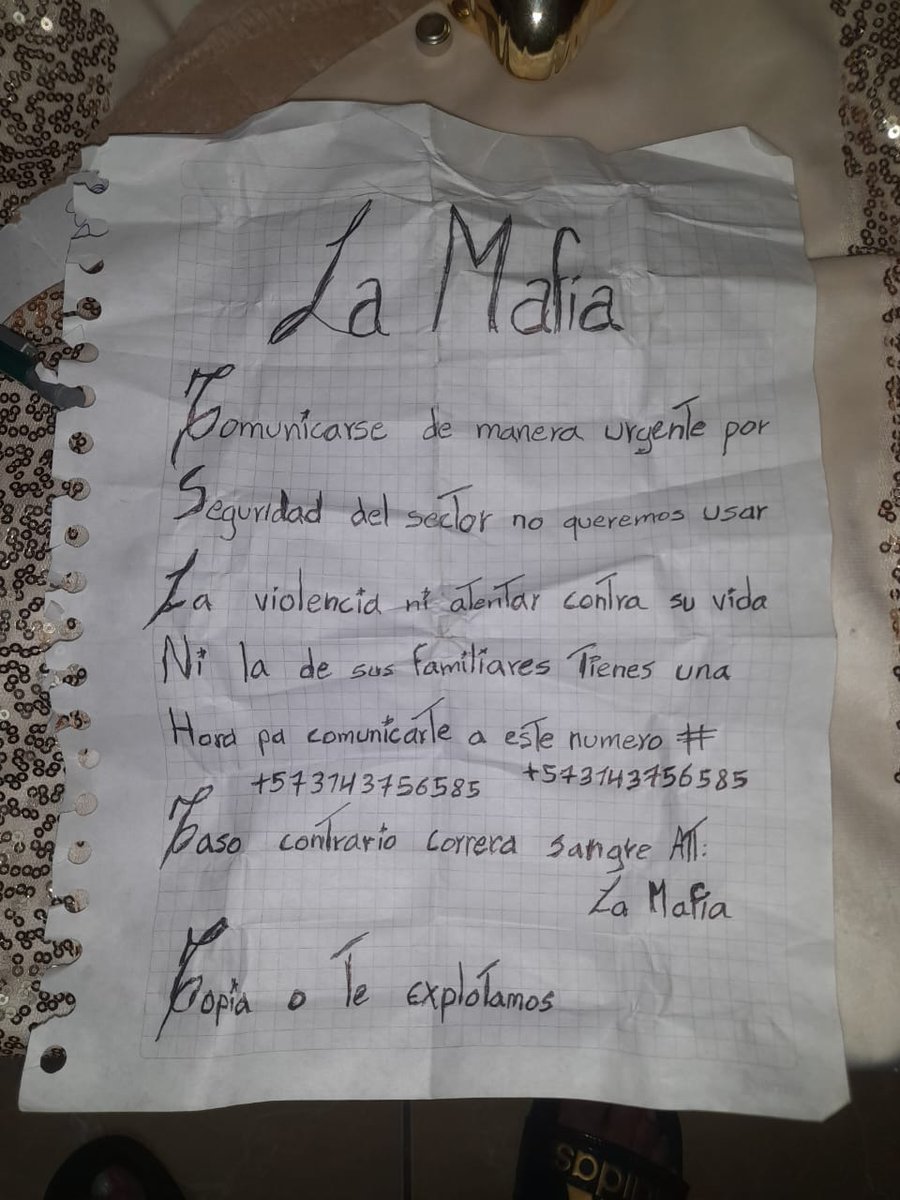 La Mafia
Comunicarse de manera urgente por
Seguridad del sector no queremos usar
La violencia ni atentar contra su vida
Ni la de sus familiares Tienes una
Hora pa comunicarte a este numero #
+573143756585 +573143756585
Caso contrario correra sangre ATT:
La Mafia
Copia o Te explotamos
adidas